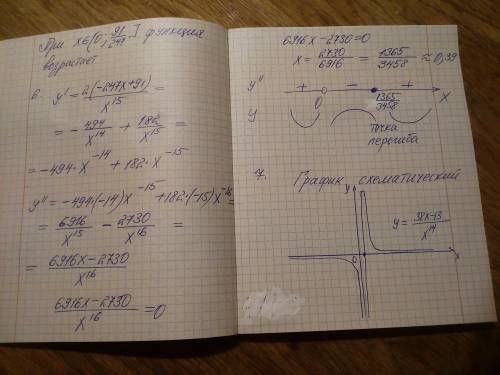 При x∈(0; 91/247] функция
возрастает
6 y' = 2(-247x+91)/x^15 =
= -494/x^14 + 182/x^15 =
= -494·x^-14 + 182·x^-15
y'' = -494·(-14)x^-15 + 182·(-15)x^-16 =
= 6916/x^15 - 2730/x^16 =
= 6916x-2730/x^16
6916x-2730/x^16 = 0
6916x-2730=0
x = 2730/6916 = 1365/3458 ≈ 0,39
y'' + - +
0 1365/3458 x
y
точка
перегиба
7. График схематический
y
y = 38x-13/x^14
0 x